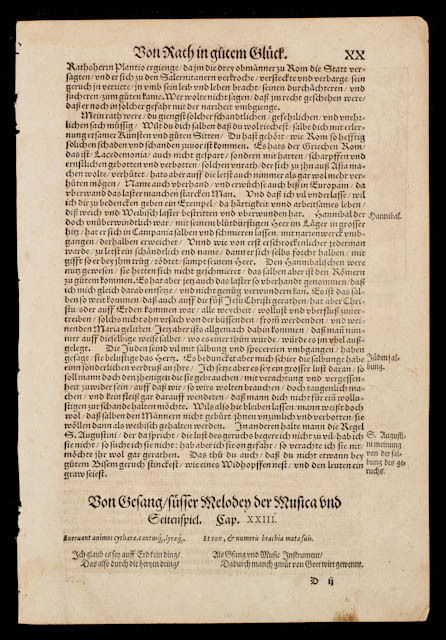 Von Rath in gůtem Glück. XX
Rathoherrn Plantio ergienge/ da jm die drey obmänner zu Rom die Statt ver-
sagten/ vnd er sich zu den Salernitanern verkroche/ versteckte vnd verbarge/ sein
geruch jn verriete/ jn vmb sein leib vnd leben bracht/ seinen durchächteren/ vnd
sůcheren/ zum gůten kame. Wer wolte nicht sagen/ daß jm recht geschehen were/
daß er noch in solcher gefahr mit der narrheit vmbgienge.
Mein rath were/ du giengst solcher schandtlichen/ gefehrlichen/ vnd vnehr-
lichen sach müssig/ Wilt du dich salben daß du wol riechest/ salbe dich mit erler-
nung ersamer Künsten vnd gůten Sitten/ Du hast gehört/ wie Rom so hefftig
solichen schaden vnd schanden zuuor ist kommen. Es hats der Griechen Rom/
das ist/ Lacedemonia/ auch nicht gespart/ sondern mit harten/ scharpffen vnd
ernstlichen gebotten vnd verbotten/ solchen vnrath/ der sich zu jhn auß Asia ma-
chen wolte/ verhůtet/ hats aber auff die letst auch nimmer als gar wol mehr ver-
hůten mögen/ Name auch vberhand/ vnd erwůchse auch biß in Europam/ da
vberwand das laster manchen starcken Man. Vnd daß ich vil vnderlasse/ wil
ich dir zu bedencken geben ein Exempel/ da härtigkeit vnnd arbeitsames leben/
diß weich vnd Weibisch laster bestritten vnd vberwunden hat. Hannibal der
Hannibal.
doch vnüberwindlich war/ mit seinem blůtdürstigen Heer im Läger in grosser
hitz/ hat er sich in Campania salben vnd schmieren lassen/ mit narrenwerck vmb-
gangen/ derhalben erweichet/ Vnnd wie von erst erschrockenlich er jederman
warde/ zu letst ein schändtlich end name/ dann er sich selbs forcht halben/ mit
gifft so er bey jhm trůg/ tödtet/ sampt seinem Heer. Den Hannibalischen were
nutz gewesen/ sie hetten sich nicht geschmieret/ das salben aber ist den Römern
zu gůtem kommen. Es hat aber jetz auch das laster so vberhand genommen/ daß
ich mich gleich darab entsetze/ vnd nicht genůg verwundern kan. Es ist das sal-
ben so weit kommen/ daß auch auff die fůß Jesu Christi gerathen/ hat aber Chri-
stus/ der auff Erden kommen war/ alle weycheit/ wollust vnd vberfluß zuuer-
treiben/ solchs nicht ohn vrsach von der büssenden/ from̃ werdenden/ vnd wei-
nenden Maria gelitten/ Jetz aber ists allgemach dahin kommen/ daß man nim-
mer auff dieselbige weise salbet/ wo es einer thůn würde/ würde es im vbel auß-
gelegt. Die Juden seind vil mit salbung vnd specereien vmbgangen/ haben
gesagt/ sie belustige das Hertz. Es beduncket aber mich schier die salbunge habe
Jüden sal-
bung.
einn sonderlichen verdruß an jhre/ Ich setze aber es sey ein grosser lust daran/ so
soll mann doch den jhenigen die sie gebrauchen/ mit verachtung vnd vergessen-
heit zuwider sein/ auff daß wir/ so wirs wolten brauchen/ doch taugenlich ma-
chen/ vnd kein fleiß gar darauff wendeten/ daß mann dich nicht für ein wollu-
stigen zur schande halten möchte. Wils also hie bleiben lassen/ mann weißt doch
wol/ daß salben den Männern nicht gebürt/ jhnen vnzimlich vnd verbotten/ sie
wöllen dann als weibisch gehalten werden. In anderen halte mann die Regel
S. Augustini/ der da spricht/ die lust des geruchs begere ich nicht zu vil/ hab ich
S. Augusti-
ni meinung
von der sal-
bung des ge-
ruchs.
sie nicht/ so sůche ich sie nicht: hab aber ich sie on gefahr/ so verachte ich sie nit/
möcht jhr wol gar gerathen. Das thů du auch/ daß du nicht etwann bey
gůtem Bisem geruch stinckest/ wie eines Widhopffen nest/ vnd den leuten ein
graw seiest.
Von Gesang/ süsser Melodey der Musica vnd
Seitenspiel. Cap. XXIII.
Exeruant animos cytharæ, cantusq́, lyræq́,
Et vox, & numeris brachia mota suis.
Ich glaub es sey auff Erd kein ding/
Das also durch die hertzen dring/
Als Gsang vnd Music Instrument/
Dadurch manch gmüt von Gott wirt gewennt.
D ij